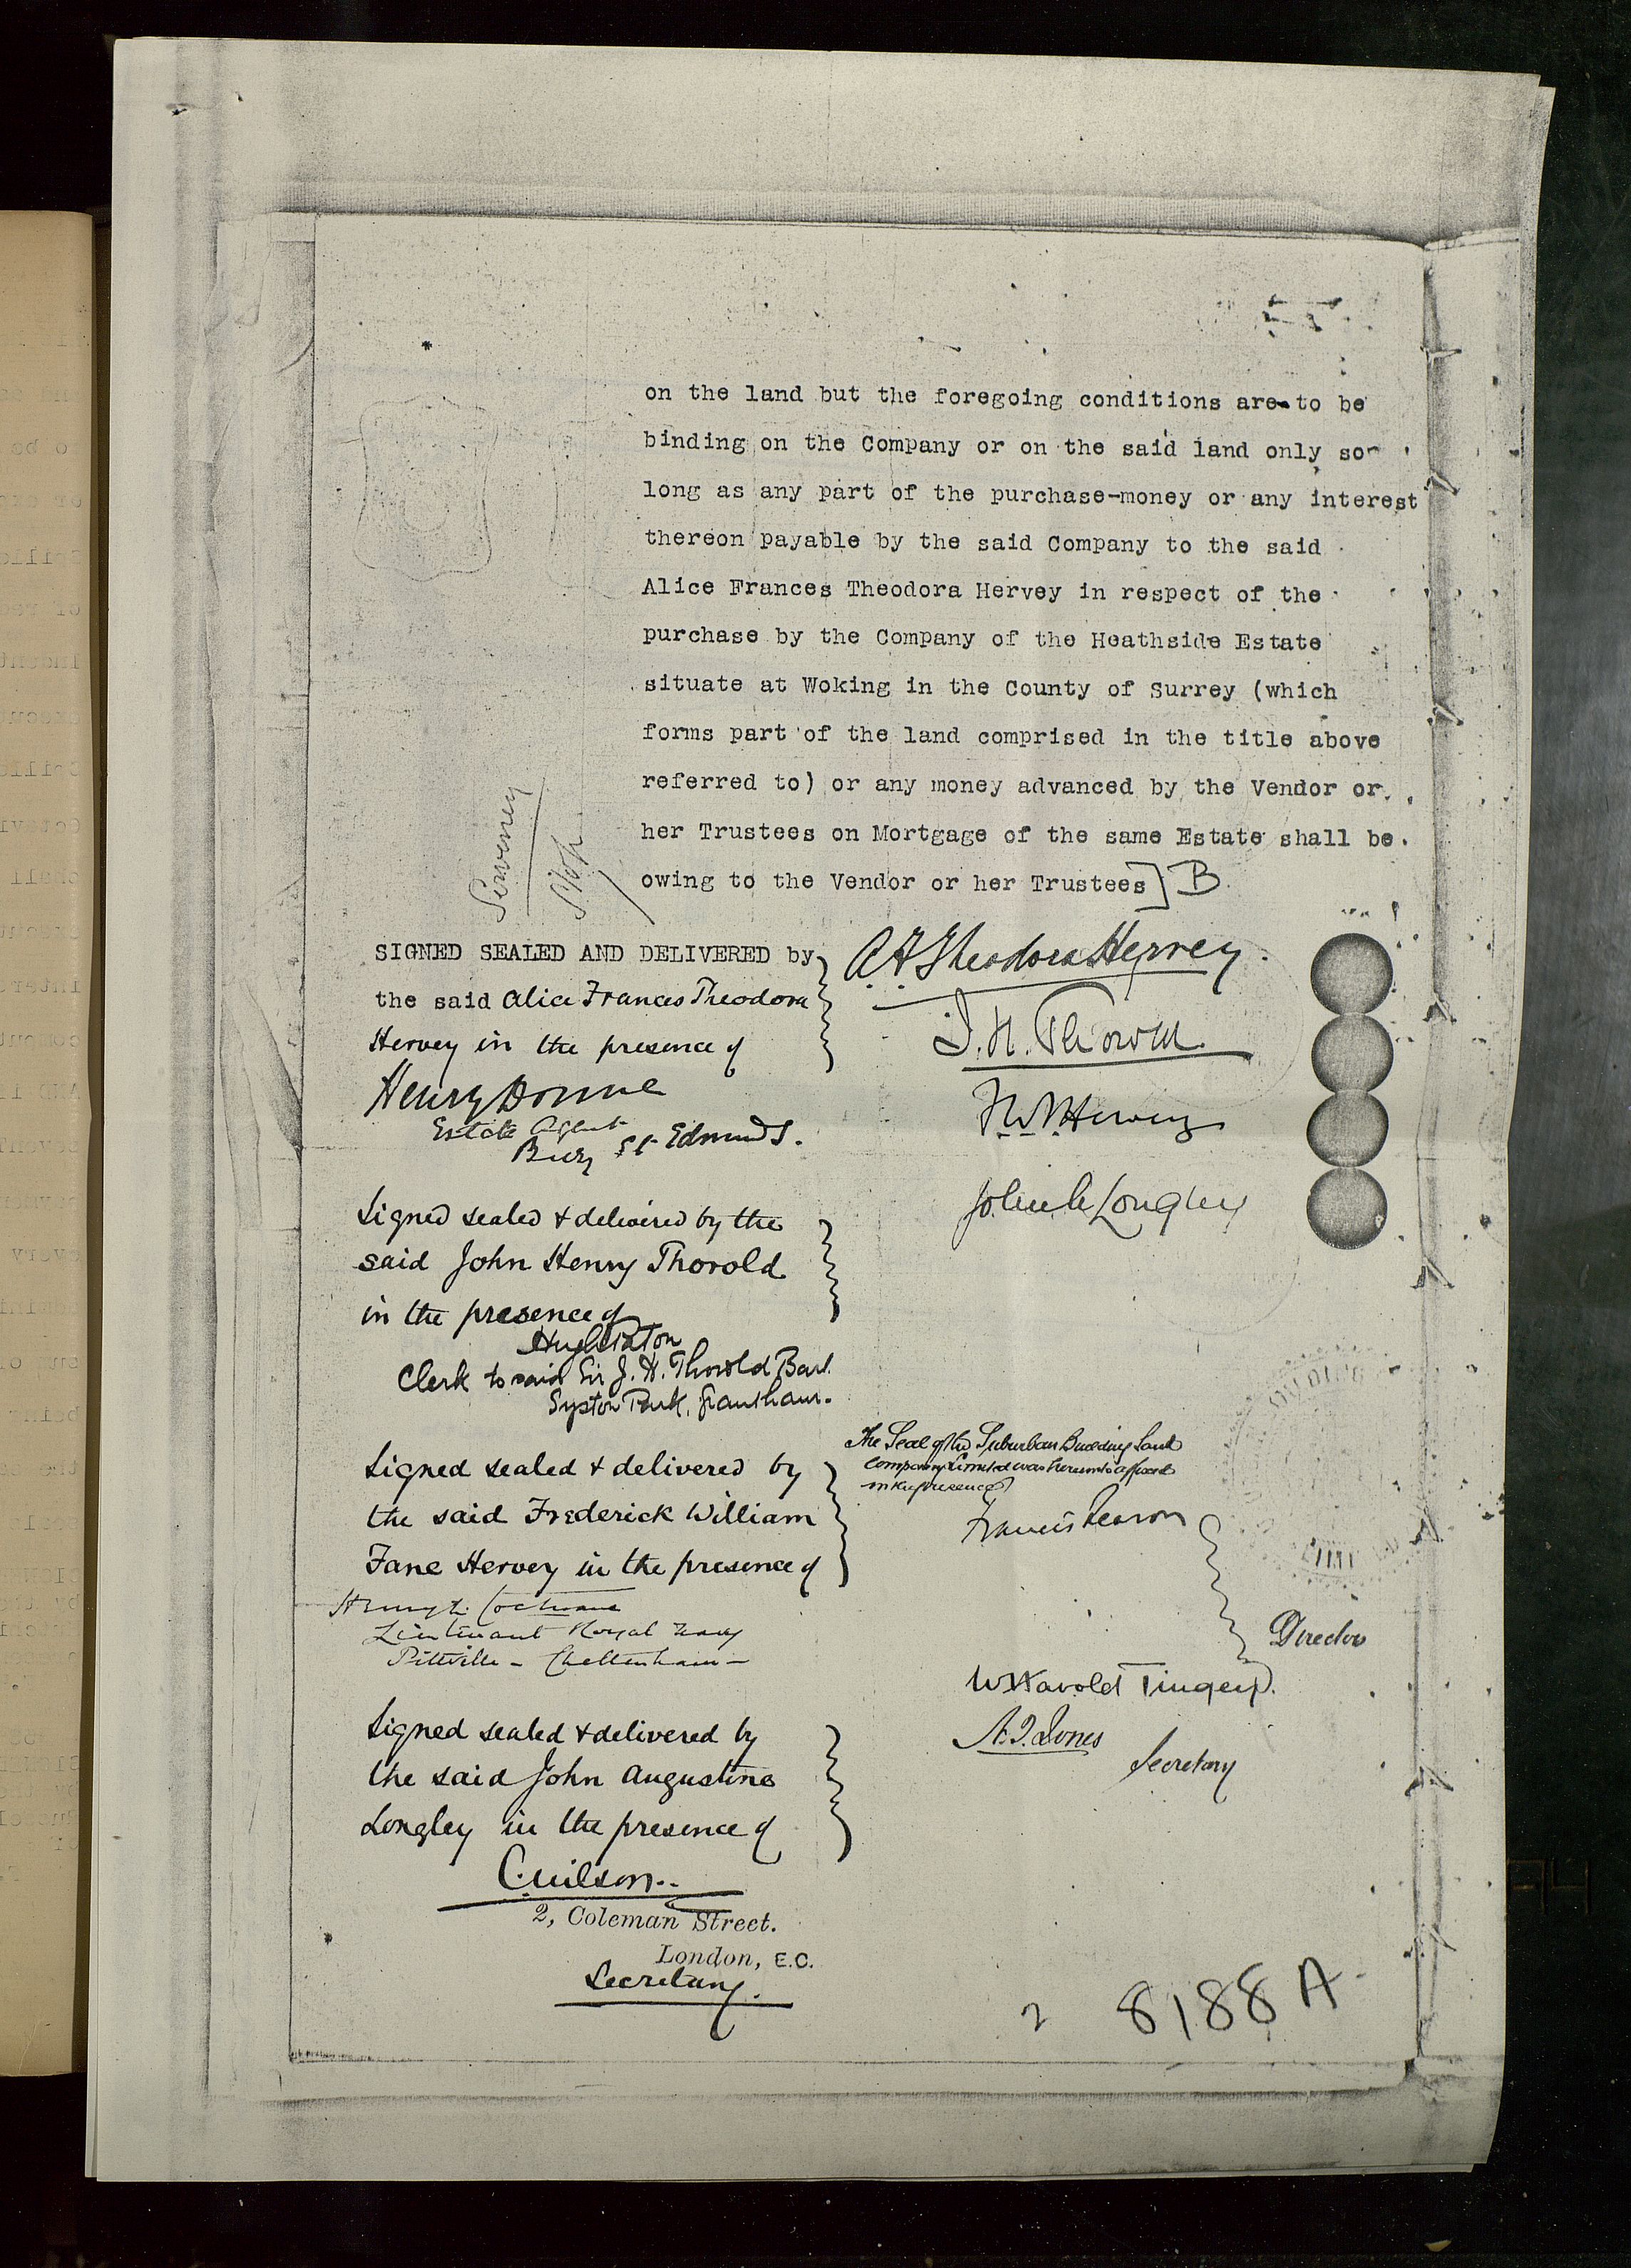 on the land but the foregoing conditions are to be
binding on the Company or on the said land only so
long as any part of the purchase-money or any interest
thereon payable by the said Company to the said
Alice Frances Theodora Hervey in respect of the
purchase by the Company of the Heathside Estate
situate at Woking in the County of Surrey (which
forms part of the land comprised in the title above
referred to) or any money advanced by the Vendor or
her Trustees on Mortgage of the same Estate shall be
owing to the Vendor or her Trustees] B
Stop
SIGNED SEALED AND DELIVERED by
the said Alice Frances Theodora
Hervey in the presence of
Henry Donne
Estate Agent
Bury St Edmunds.
Signed sealed & delivered by the
said John Henry Thorold
in the presence of
Clerk to said Sir J. H. Thorold Bart.
Syston Park, Grantham.
Signed sealed & delivered by
the said Frederick William
Fane Hervey in the presence of
Cochrane
Lieutenant Royal Navy
Pittville - Cheltenham -
Signed sealed & delivered by
the said John Augustine
Longley in the presence of
C. Wilson
2, Coleman Street.
London, E.C.
Secretary.
A F Theodora Hervey.
J. H. Thorold
F W F Hervey
John A Longley
The Seal of the Suburban Building Land
Company Limited was hereunto affixed
in the presence of
Francis
Directors
W Harold Tingey
A. J. Jones
Secretary
2 8188 A